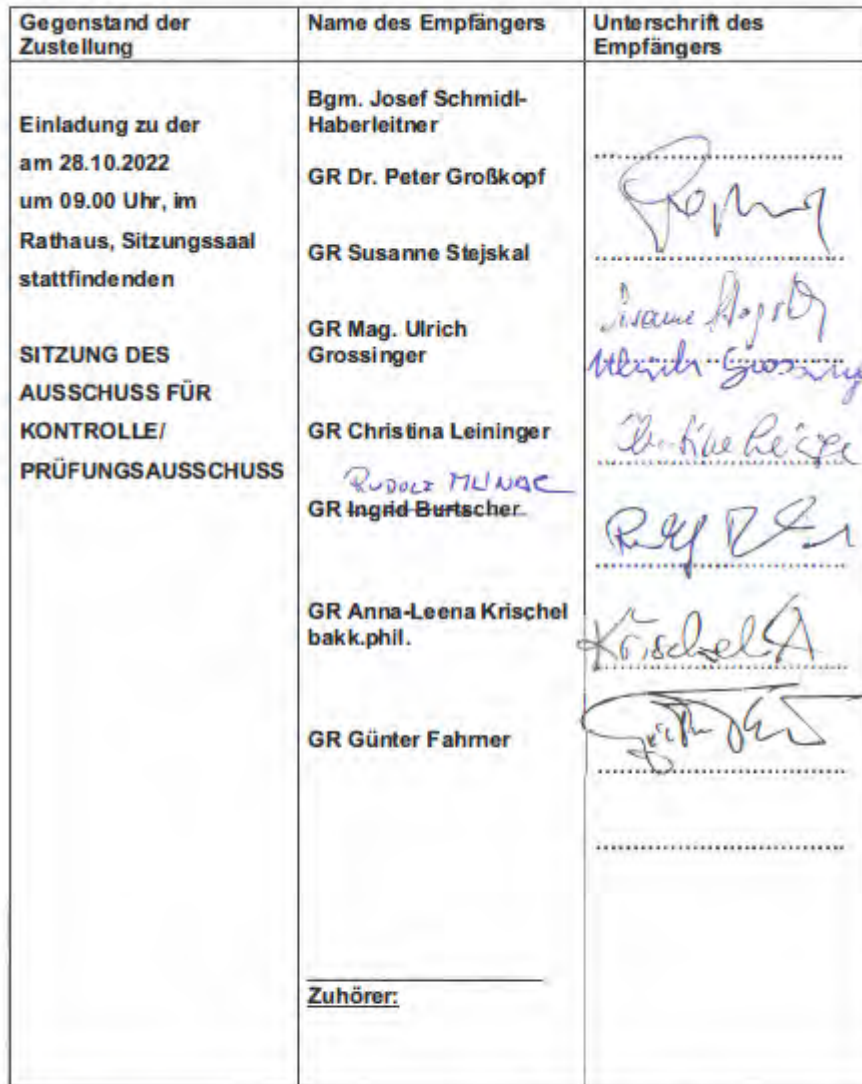 Gegenstand der
Zustellung
Name des Empfängers
Unterschrift des
Empfängers
Einladung zu der
am 28.10.2022
um 09.00 Uhr, im
Rathaus, Sitzungssaal
stattfindenden
SITZUNG DES
AUSSCHUSS FÜR
KONTROLLE/
PRÜFUNGSAUSSCHUSS
Bgm. Josef Schmidl-
Haberleitner
GR Dr. Peter Großkopf
GR Susanne Stejskal
GR Mag. Ulrich
Grossinger
GR Christina Leininger
RUDOLF MLINAR
GR Ingrid Burtscher
GR Anna-Leena Krischel
bakk.phil.
GR Günter Fahrner
Zuhörer:
Ulrich Grossinger
Krischel A